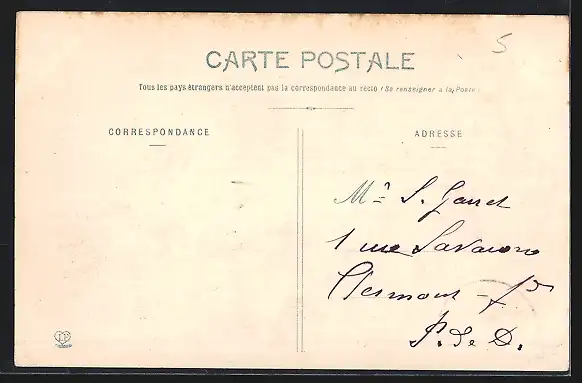 5
CARTE POSTALE
Tous les pays étrangers n'acceptent pas la correspondance au recto (Se renseigner à la Poste)
CORRESPONDANCE
ADRESSE
Mr S.
1 rue Savaron
Clermont-Fd
P. de D.